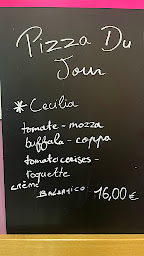 Pizza Du
Jour
* Cecilia
tomate - mozza
buffala - coppa
tomato cerises -
roquette
crème
Balsamico 16,00 €